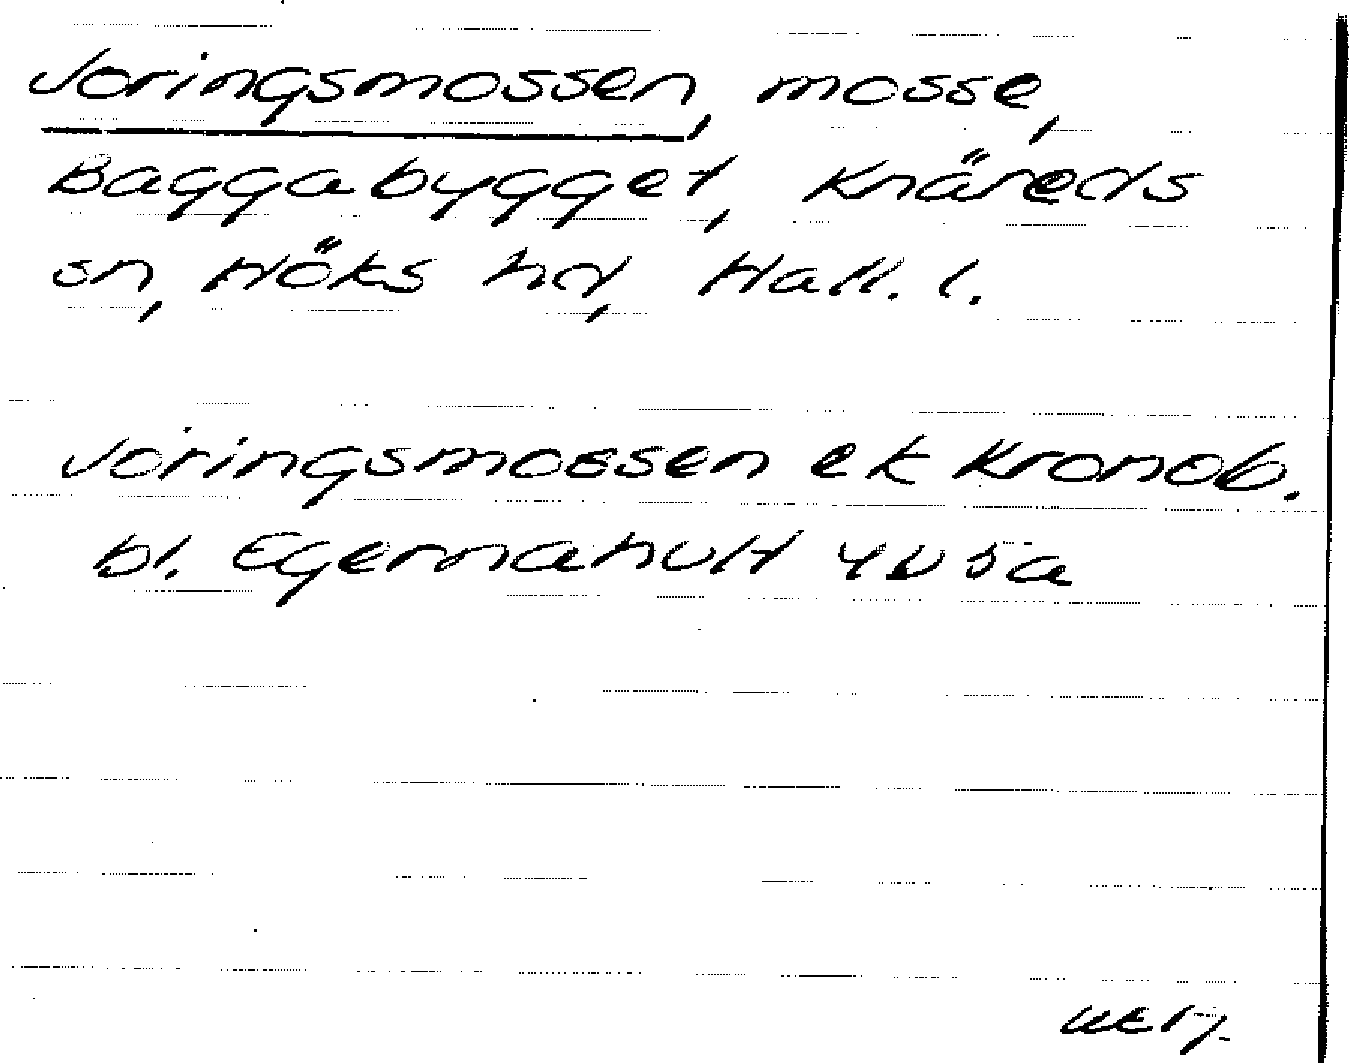 Joringsmossen, mosse,
Baggabygget, Knäreds
sn, Höks hd, Hall. l.
Joringsmossen ek Kronob.
bl. Egernahult 4D5a